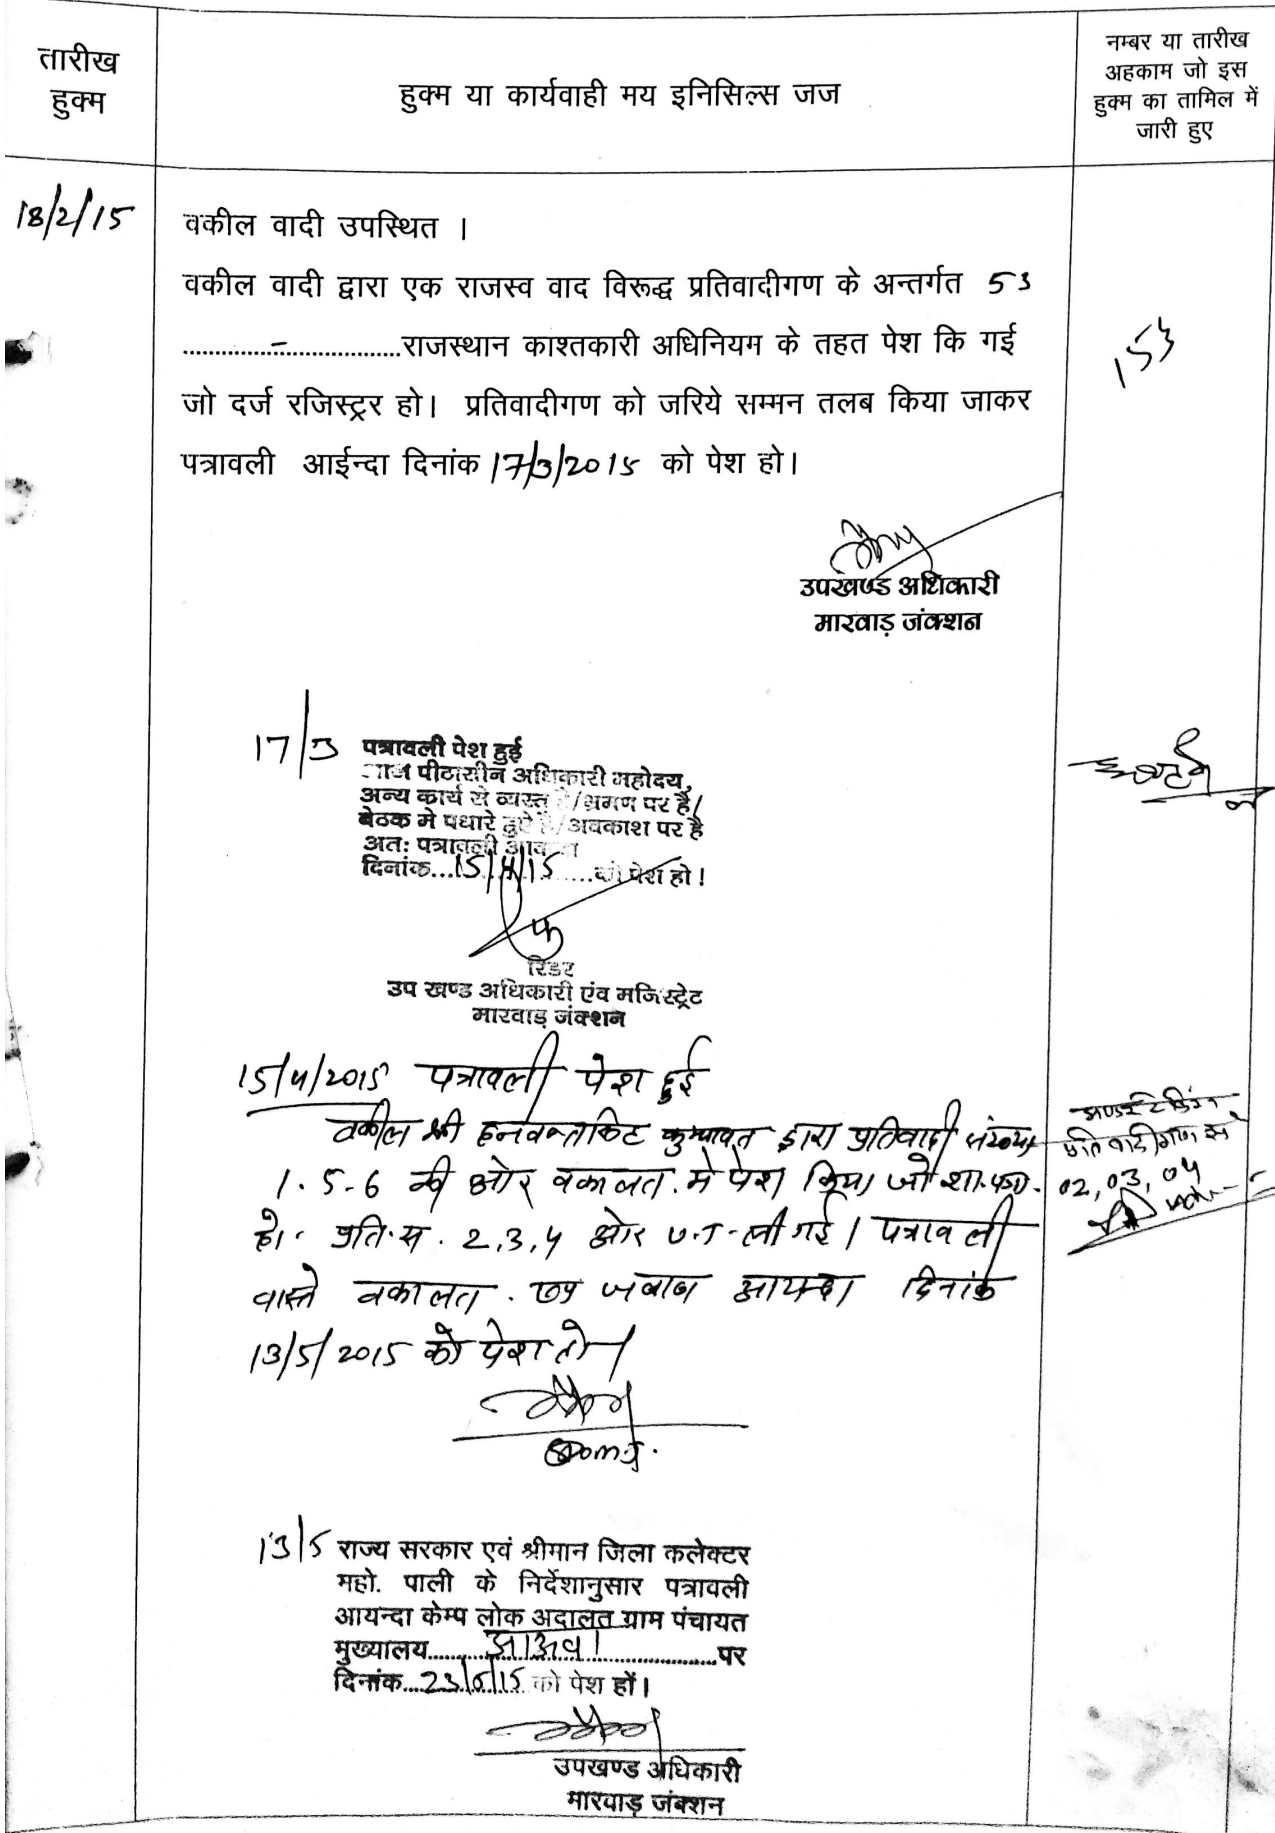 तारीख
हुक्म
हुक्म या कार्यवाही मय इनिसिल्स जज
नम्बर या तारीख
अहकाम जो इस
हुक्म का तामिल में
जारी हुए
18/2/15
वकील वादी उपस्थित ।
वकील वादी द्वारा एक राजस्व वाद विरूद्ध प्रतिवादीगण के अन्तर्गत 53
.............-.............राजस्थान काश्तकारी अधिनियम के तहत पेश कि गई
153
जो दर्ज रजिस्ट्रर हो। प्रतिवादीगण को जरिये सम्मन तलब किया जाकर
पत्रावली आईन्दा दिनांक 17/3/2015 को पेश हो।
उपखण्ड अधिकारी
मारवाड़ जंक्शन
17/3 पत्रावली पेश हुई
आज पीठासीन अधिकारी महोदय,
अन्य कार्य से व्यस्त है/भ्रमण पर है/
बेठक मे पधारे हुऐ है/अवकाश पर है
अतः पत्रावली
दिनांक...15/4/15......को पेश हो !
रिडर
उप खण्ड अधिकारी एंव मजिस्ट्रेट
मारवाड़ जंक्शन
15/4/2015 पत्रावली पेश हुई
वकील श्री द्वारा प्रतिवादी संख्या
1.5.6 की ओर वकालत. पेश किया जो
हो. प्रति.स. 2,3,4 ओर ली गई । पत्रावली
वास्ते वकालत. जवाब आयन्दा दिनांक
13/5/2015 को पेश हो
प्रतिवादीगण
02, 03, 04
13/5 राज्य सरकार एवं श्रीमान जिला कलेक्टर
महो. पाली के निर्देशानुसार पत्रावली
आयन्दा केम्प लोक अदालत ग्राम पंचायत
मुख्यालय.......आऊवा.......पर
दिनांक...23/5/15 को पेश हों।
उपखण्ड अधिकारी
मारवाड़ जंक्शन